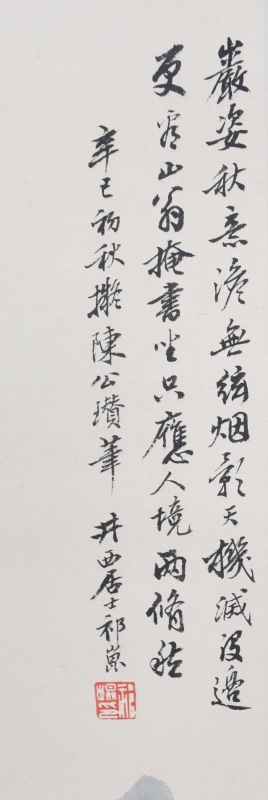 巖姿秋意澹無弦烟影天機滅沒邊
更看山翁掩書坐只應人境兩翛然
辛巳初秋擬陳公瓚筆 井西居士祁崑